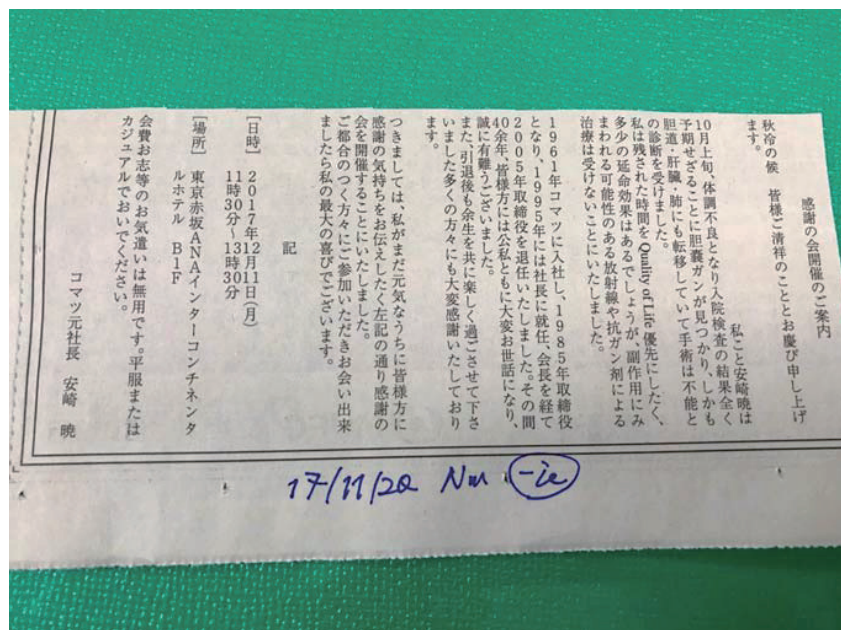 感謝の会開催のご案内
秋冷の候　皆様ご清祥のこととお慶び申し上げ
ます。
私こと安崎暁は
10月上旬、体調不良となり入院検査の結果全く
予期せざることに胆嚢ガンが見つかり、しかも
胆道・肝臓・肺にも転移していて手術は不能と
の診断を受けました。
私は残された時間をQuality of Life優先にしたく、
多少の延命効果はあるでしょうが、副作用にみ
まわれる可能性のある放射線や抗ガン剤による
治療は受けないことにいたしました。
1961年コマツに入社し、1985年取締役
となり、1995年には社長に就任、会長を経て
2005年取締役を退任いたしました。その間
40余年、皆様方には公私ともに大変お世話になり、
誠に有難うございました。
また、引退後も余生を共に楽しく過ごさせて下さ
いました多くの方々にも大変感謝いたしており
ます。
つきましては、私がまだ元気なうちに皆様方に
感謝の気持ちをお伝えしたく左記の通り感謝の
会を開催することにいたしました。
ご都合のつく方々にご参加いただきお会い出来
ましたら私の最大の喜びでございます。
記
［日時］　2017年12月11日（月）
11時30分～13時30分
［場所］　東京赤坂ANAインターコンチネンタ
ルホテル　B1F
会費お志等のお気遣いは無用です。平服または
カジュアルでおいでください。
コマツ元社長　安崎　暁
17/11/20